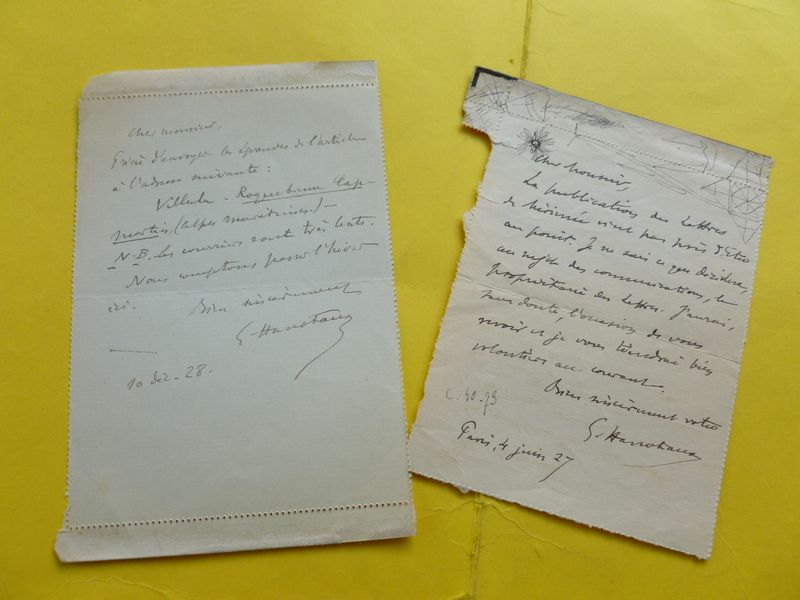 Cher monsieur,
Prière d'envoyer les épreuves de l'article
à l'adresse suivante :
Villula - Roquebrune Cap-
martin, (alpes maritimes). -
N-B. Les courriers sont très lents.
Nous comptons passer l'hiver
ici. Bien sincèrement
G. Hanotaux
10 déc - 28.
Cher Monsieur,
La publication des Lettres
de Mérimée n'est pas près d'être
au point. Je ne sais ce que décidera,
au sujet des communications, le
propriétaire des Lettres. J'aurai,
sans doute, l'occasion de vous
revoir et je vous tiendrai bien
volontiers au courant.
Bien sincèrement votre
G. Hanotaux
C. 40-73
Paris, 4 juin 27